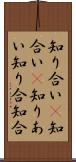 知り合い知
合い知りあ
い知り合知合